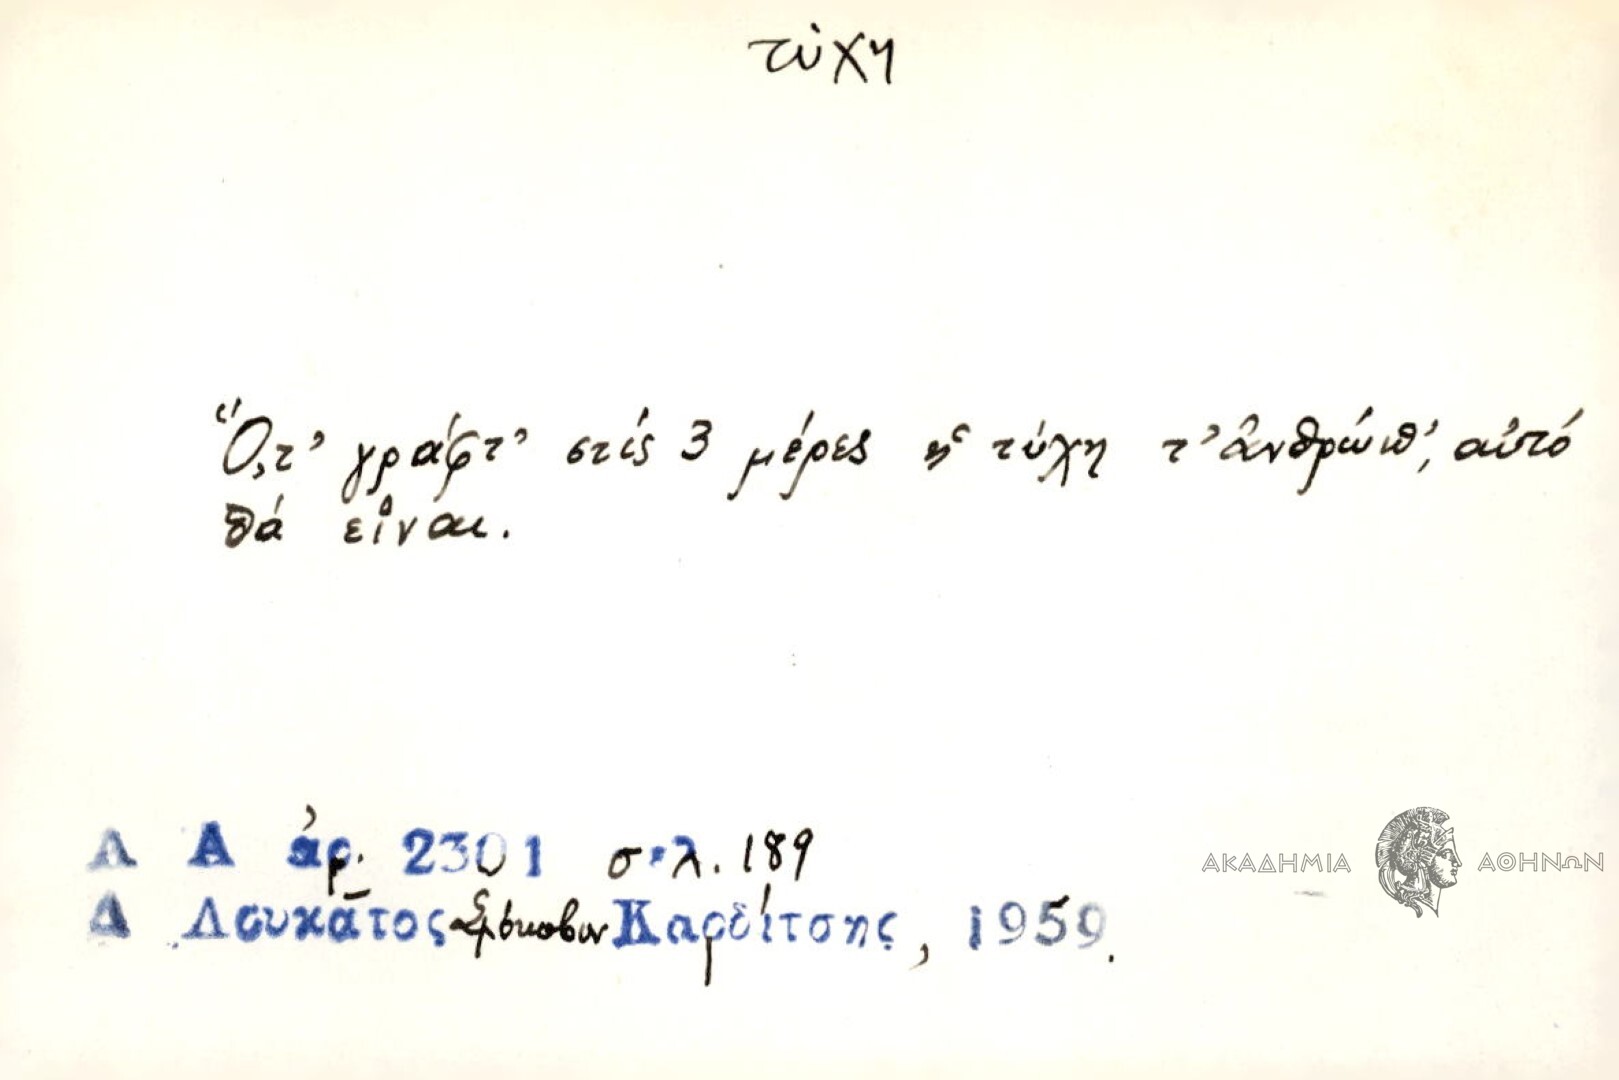 τύχη
Ὅ,τ' γράφτ' στίς 3 μέρες ἡ τύχη τ' ἀνθρώπ', αὐτό
θά εἶναι.
Λ Α ἀρ. 2301 σελ. 189
Δ Λουκᾶτος Καρδίτσης, 1959.
ΑΚΑΔΗΜΙΑ ΑΘΗΝΩΝ